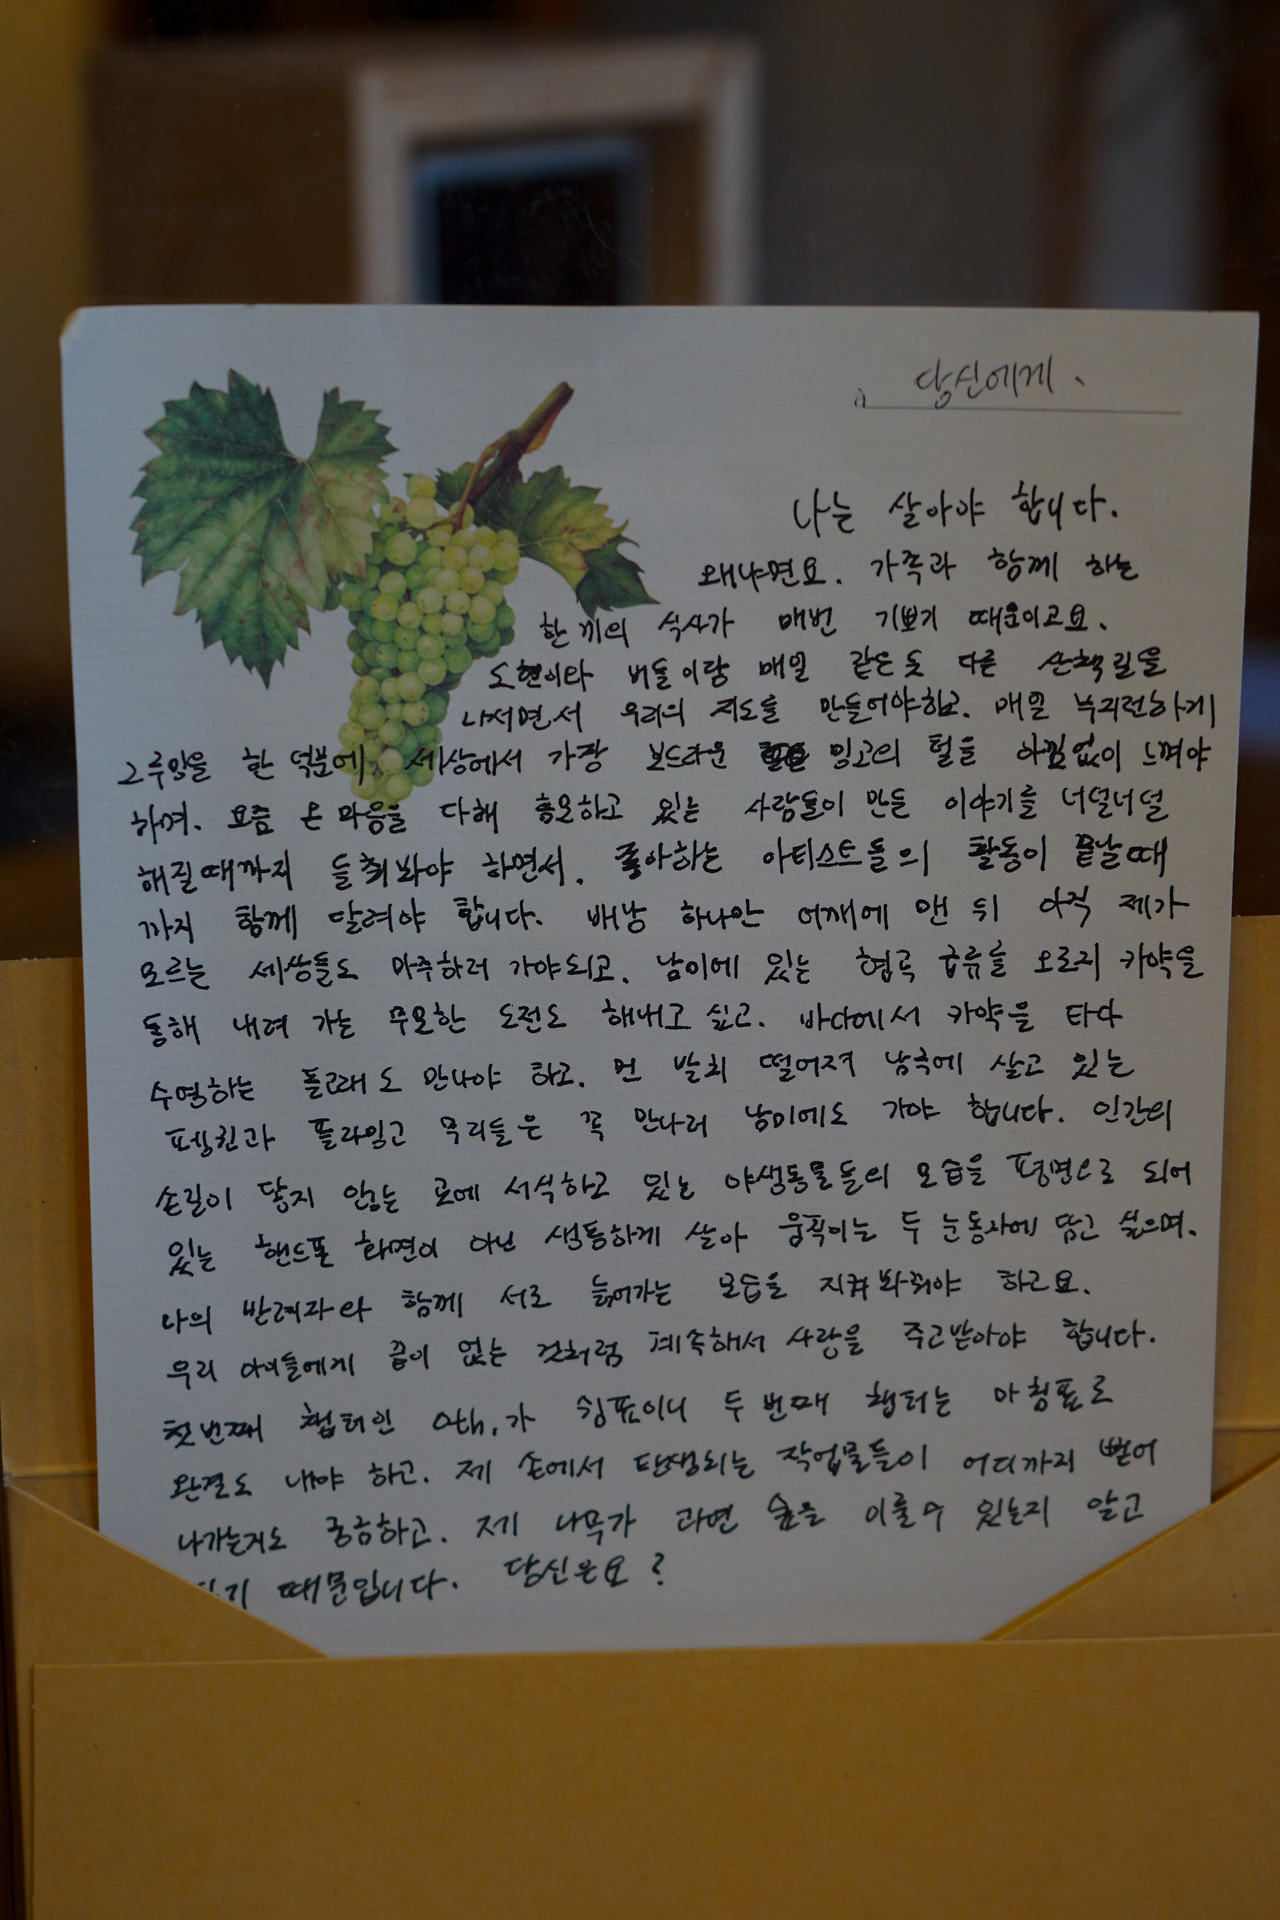 당신에게、
나는 살아야 합니다.
왜냐면요. 가족과 함께 하는
한 끼의 식사가 매번 기쁘기 때문이고요.
도현이와 버들이랑 매일 같은듯 다른 산책길을
나서면서 우리의 지도를 만들어야하고. 매일 부지런하게
그루밍을 한 덕분에 세상에서 가장 보드라운 밍고의 털을 아낌없이 느껴야
하며. 요즘 온 마음을 다해 흠모하고 있는 사람들이 만든 이야기를 너덜너덜
해질때까지 들춰봐야 하면서. 좋아하는 아티스트들의 활동이 끝날때
까지 함께 달려야 합니다. 배낭 하나만 어깨에 맨 뒤 아직 제가
모르는 세상들도 마주하러 가야되고. 남미에 있는 협곡 급류를 오로지 카약을
통해 내려 가는 무모한 도전도 해내고 싶고. 바다에서 카약을 타다
수영하는 돌고래도 만나야 하고. 먼 발치 떨어져 남극에 살고 있는
펭귄과 플라밍고 무리들은 꼭 만나러 남미에도 가야 합니다. 인간의
손길이 닿지 않는 곳에 서식하고 있는 야생동물들의 모습을 평면으로 되어
있는 핸드폰 화면이 아닌 생동하게 살아 움직이는 두 눈동자에 담고 싶으며.
나의 반려자와 함께 서로 늙어가는 모습을 지켜봐줘야 하고요.
우리 아이들에게 끝이 없는 것처럼 계속해서 사랑을 주고받아야 합니다.
첫번째 챕터인 oth,가 쉼표이니 두번째 챕터는 마침표로
완결도 내야 하고. 제 손에서 탄생되는 작업물들이 어디까지 뻗어
나가는거도 궁금하고. 제 나무가 과연 숲을 이룰수 있는지 알고
기 때문입니다. 당신은요?